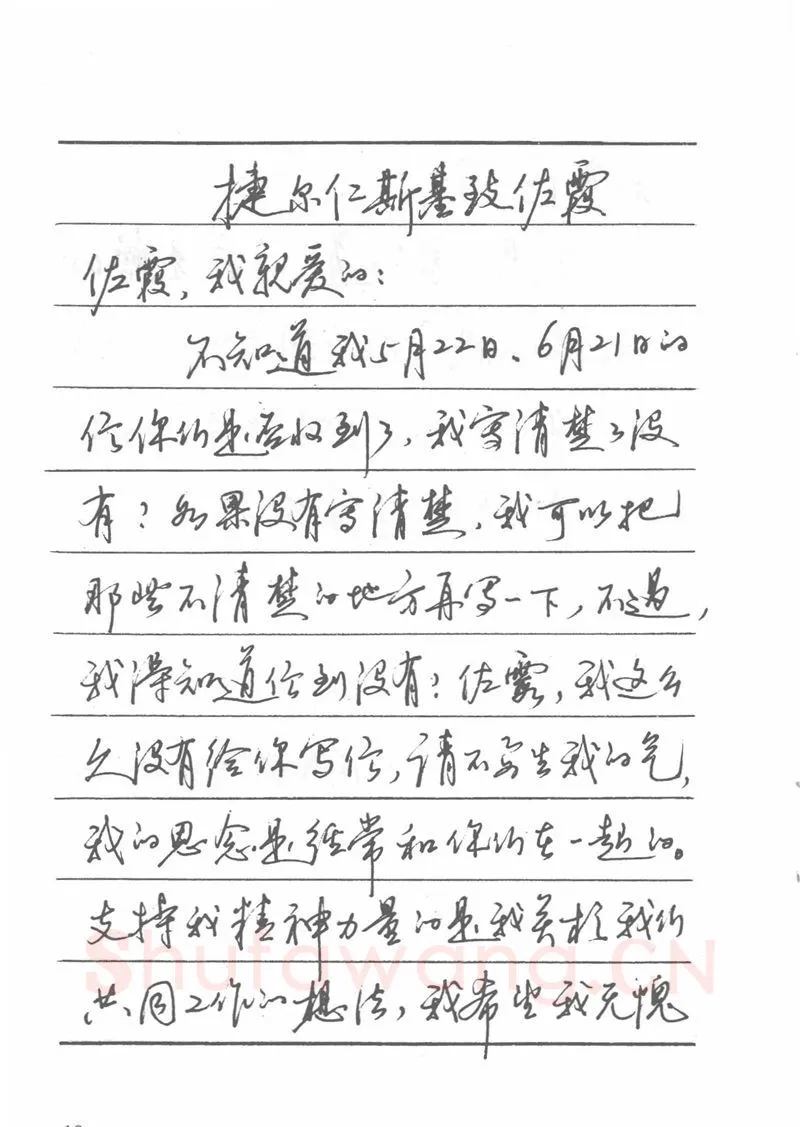 捷尔仁斯基致佐霞
佐霞,我亲爱的:
不知道我5月22日、6月21日的
信你们是否收到了,我写清楚了没
有?如果没有写清楚,我可以把
那些不清楚的地方再写一下,不过,
我得知道信到没有?佐霞,我这么
久没有给你写信,请不要生我的气,
我的思念是经常和你们在一起的。
支持我精神力量的是我关于我们
共同工作的想法,我希望我无愧
Shufawang.CN